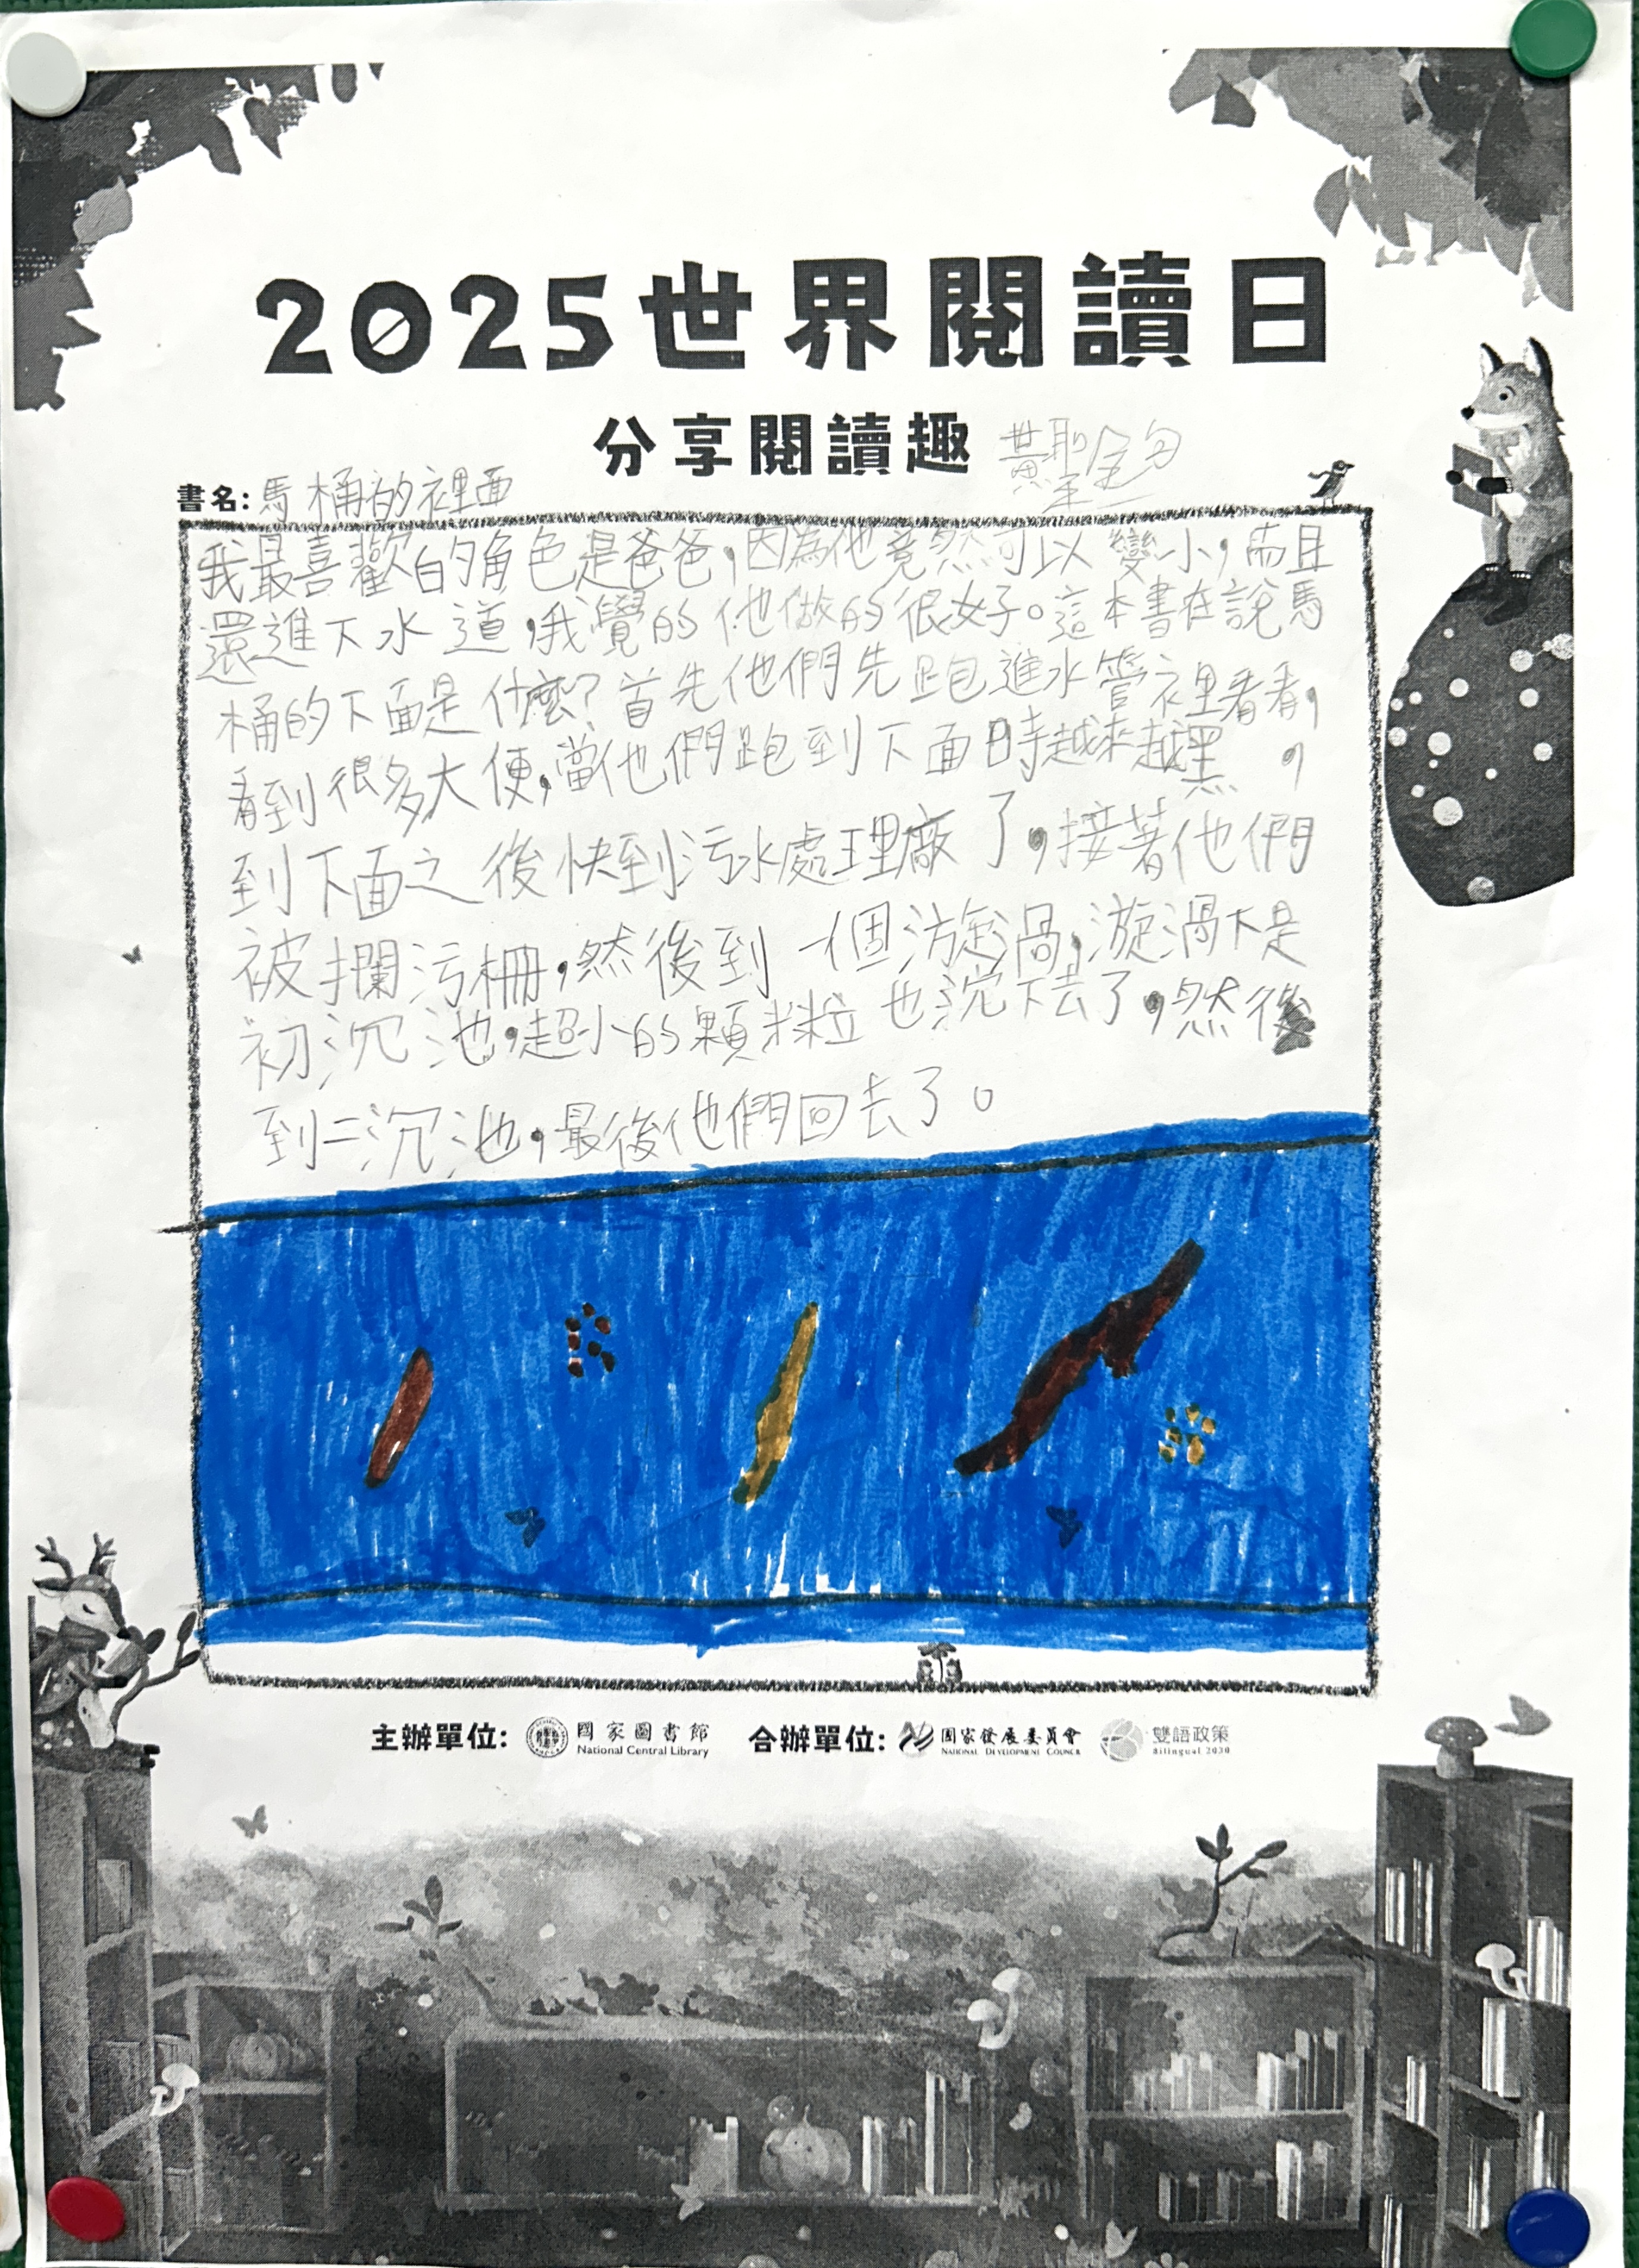 2025世界閱讀日
分享閱讀趣 黃聖
書名:馬桶的裡面
我最喜歡的角色是爸爸,因為他竟然可以變小,而且
還進下水道,我覺的他做的很好。這本書在說馬
桶的下面是什麼?首先他們先跑進水管裡看看,
看到很多大便,當他們跑到下面時越來越黑,
到下面之後快到污水處理廠了,接著他們
被攔污柵,然後到一個漩渦,漩渦下是
初沉池,超小的顆粒也沉下去了,然後
到二沉池,最後他們回去了。
主辦單位: 國家圖書館 合辦單位: 國家發展委員會 雙語政策
National Central Library NATIONAL DEVELOPMENT COUNCIL Bilingual 2030